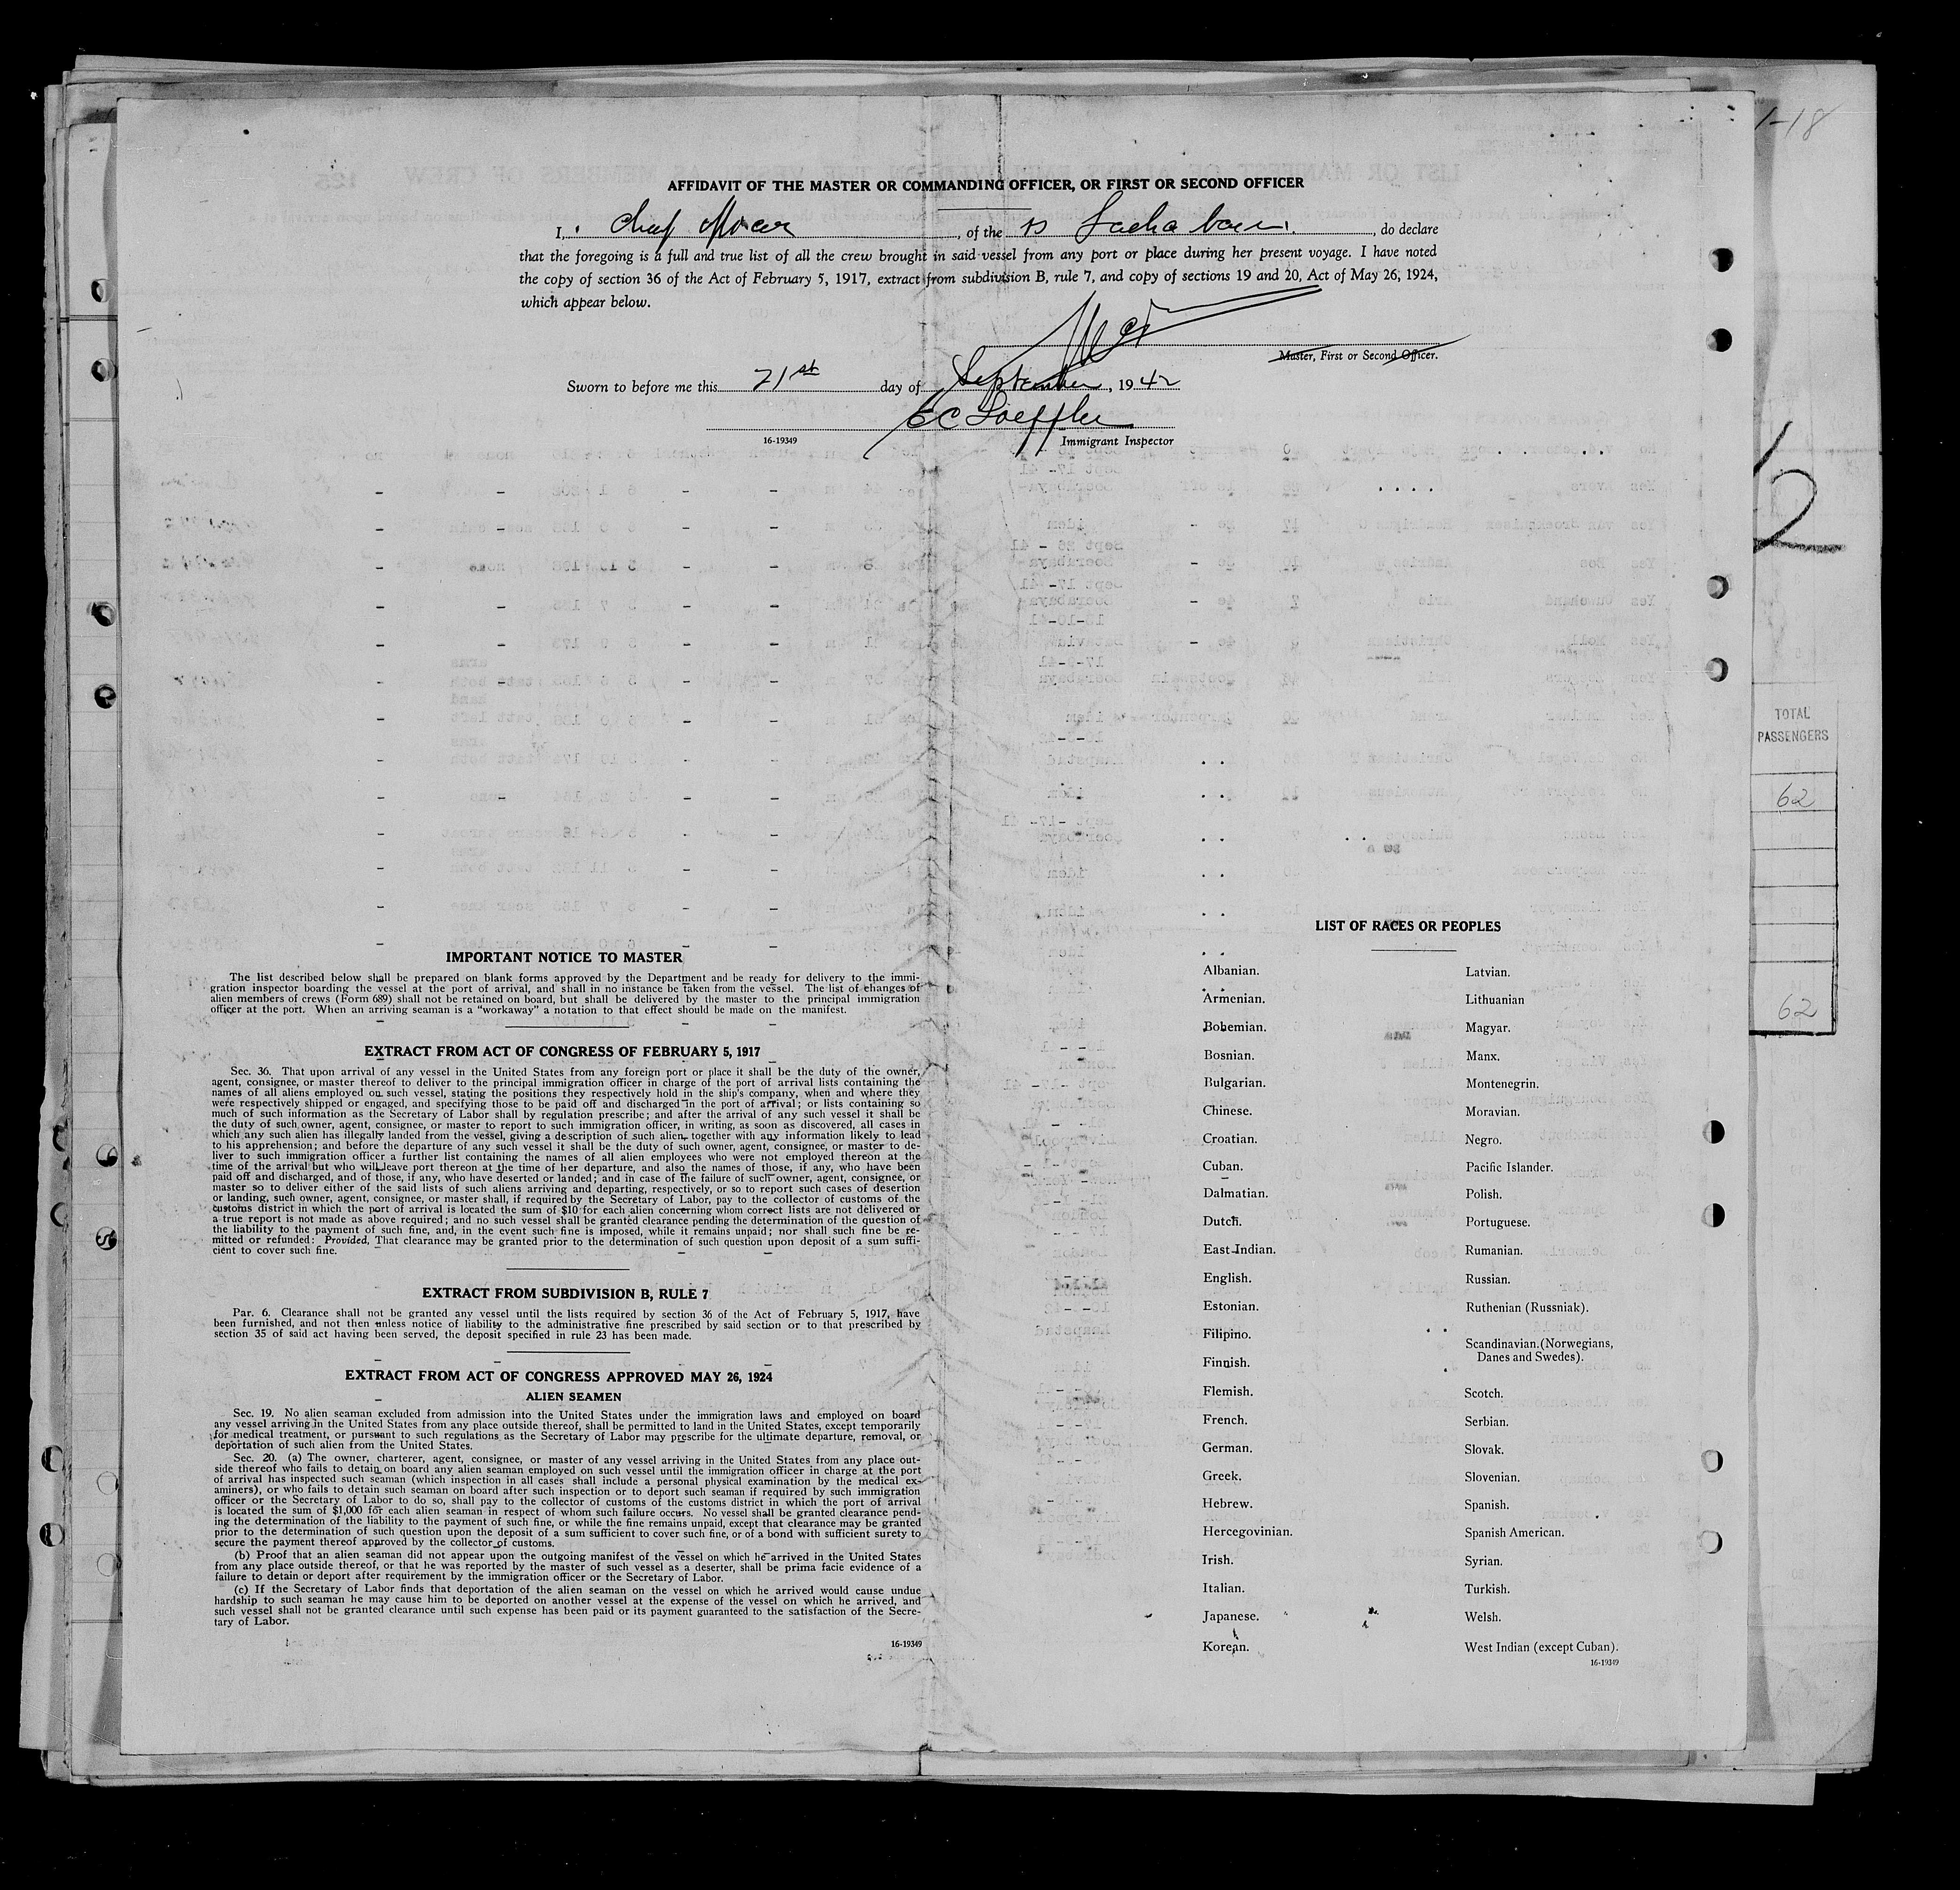 1-18
AFFIDAVIT OF THE MASTER OR COMMANDING OFFICER, OR FIRST OR SECOND OFFICER
I, Chief Officer, of the ss, do declare
that the foregoing is a full and true list of all the crew brought in said vessel from any port or place during her present voyage. I have noted
the copy of section 36 of the Act of February 5, 1917, extract from subdivision B, rule 7, and copy of sections 19 and 20, Act of May 26, 1924,
which appear below.
Master, First or Second Officer.
Sworn to before me this 21st day of September, 1942
EC Loeffler
16-19349 Immigrant Inspector
2
TOTAL
PASSENGERS
62
62
IMPORTANT NOTICE TO MASTER
The list described below shall be prepared on blank forms approved by the Department and be ready for delivery to the immi-
gration inspector boarding the vessel at the port of arrival, and shall in no instance be taken from the vessel. The list of changes of
alien members of crews (Form 689) shall not be retained on board, but shall be delivered by the master to the principal immigration
officer at the port. When an arriving seaman is a "workaway" a notation to that effect should be made on the manifest.
EXTRACT FROM ACT OF CONGRESS OF FEBRUARY 5, 1917
Sec. 36. That upon arrival of any vessel in the United States from any foreign port or place it shall be the duty of the owner,
agent, consignee, or master thereof to deliver to the principal immigration officer in charge of the port of arrival lists containing the
names of all aliens employed on such vessel, stating the positions they respectively hold in the ship's company, when and where they
were respectively shipped or engaged, and specifying those to be paid off and discharged in the port of arrival; or lists containing so
much of such information as the Secretary of Labor shall by regulation prescribe; and after the arrival of any such vessel it shall be
the duty of such owner, agent, consignee, or master to report to such immigration officer, in writing, as soon as discovered, all cases in
which any such alien has illegally landed from the vessel, giving a description of such alien, together with any information likely to lead
to his apprehension; and before the departure of any such vessel it shall be the duty of such owner, agent, consignee, or master to de-
liver to such immigration officer a further list containing the names of all alien employees who were not employed thereon at the
time of the arrival but who will leave port thereon at the time of her departure, and also the names of those, if any, who have been
paid off and discharged, and of those, if any, who have deserted or landed; and in case of the failure of such owner, agent, consignee, or
master so to deliver either of the said lists of such aliens arriving and departing, respectively, or so to report such cases of desertion
or landing, such owner, agent, consignee, or master shall, if required by the Secretary of Labor, pay to the collector of customs of the
customs district in which the port of arrival is located the sum of $10 for each alien concerning whom correct lists are not delivered or
a true report is not made as above required; and no such vessel shall be granted clearance pending the determination of the question of
the liability to the payment of such fine, and, in the event such fine is imposed, while it remains unpaid; nor shall such fine be re-
mitted or refunded: Provided, That clearance may be granted prior to the determination of such question upon deposit of a sum suffi-
cient to cover such fine.
EXTRACT FROM SUBDIVISION B, RULE 7
Par. 6. Clearance shall not be granted any vessel until the lists required by section 36 of the Act of February 5, 1917, have
been furnished, and not then unless notice of liability to the administrative fine prescribed by said section or to that prescribed by
section 35 of said act having been served, the deposit specified in rule 23 has been made.
EXTRACT FROM ACT OF CONGRESS APPROVED MAY 26, 1924
ALIEN SEAMEN
Sec. 19. No alien seaman excluded from admission into the United States under the immigration laws and employed on board
any vessel arriving in the United States from any place outside thereof, shall be permitted to land in the United States, except temporarily
for medical treatment, or pursuant to such regulations as the Secretary of Labor may prescribe for the ultimate departure, removal, or
deportation of such alien from the United States.
Sec. 20. (a) The owner, charterer, agent, consignee, or master of any vessel arriving in the United States from any place out-
side thereof who fails to detain on board any alien seaman employed on such vessel until the immigration officer in charge at the port
of arrival has inspected such seaman (which inspection in all cases shall include a personal physical examination by the medical ex-
aminers), or who fails to detain such seaman on board after such inspection or to deport such seaman if required by such immigration
officer or the Secretary of Labor to do so, shall pay to the collector of customs of the customs district in which the port of arrival
is located the sum of $1,000 for each alien seaman in respect of whom such failure occurs. No vessel shall be granted clearance pend-
ing the determination of the liability to the payment of such fine, or while the fine remains unpaid, except that clearance may be granted
prior to the determination of such question upon the deposit of a sum sufficient to cover such fine, or of a bond with sufficient surety to
secure the payment thereof approved by the collector of customs.
(b) Proof that an alien seaman did not appear upon the outgoing manifest of the vessel on which he arrived in the United States
from any place outside thereof, or that he was reported by the master of such vessel as a deserter, shall be prima facie evidence of a
failure to detain or deport after requirement by the immigration officer or the Secretary of Labor.
(c) If the Secretary of Labor finds that deportation of the alien seaman on the vessel on which he arrived would cause undue
hardship to such seaman he may cause him to be deported on another vessel at the expense of the vessel on which he arrived, and
such vessel shall not be granted clearance until such expense has been paid or its payment guaranteed to the satisfaction of the Secre-
tary of Labor.
16-19349
LIST OF RACES OR PEOPLES
Albanian.
Armenian.
Bohemian.
Bosnian.
Bulgarian.
Chinese.
Croatian.
Cuban.
Dalmatian.
Dutch.
East Indian.
English.
Estonian.
Filipino.
Finnish.
Flemish.
French.
German.
Greek.
Hebrew.
Hercegovinian.
Irish.
Italian.
Japanese.
Korean.
Latvian.
Lithuanian
Magyar.
Manx.
Montenegrin.
Moravian.
Negro.
Pacific Islander.
Polish.
Portuguese.
Rumanian.
Russian.
Ruthenian (Russniak).
Scandinavian (Norwegians,
Danes and Swedes).
Scotch.
Serbian.
Slovak.
Slovenian.
Spanish.
Spanish American.
Syrian.
Turkish.
Welsh.
West Indian (except Cuban).
16-19349